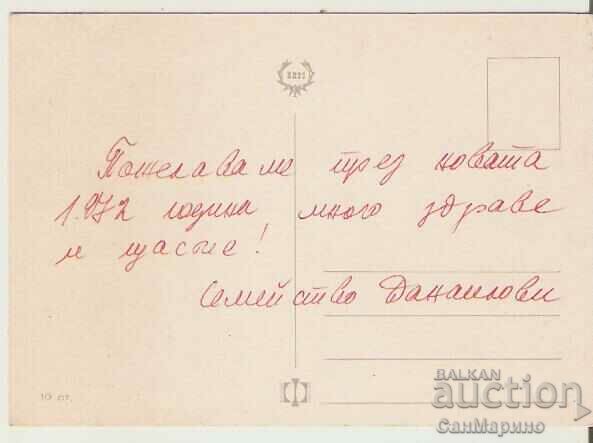 Пожелаваме през новата
1972 година много здраве
и щастие!
Семейство Данаилови
10 ст.
BALKAN
auction
СанМарино